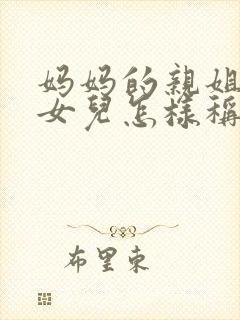 妈妈的親姐
女兒怎樣稱
布里東